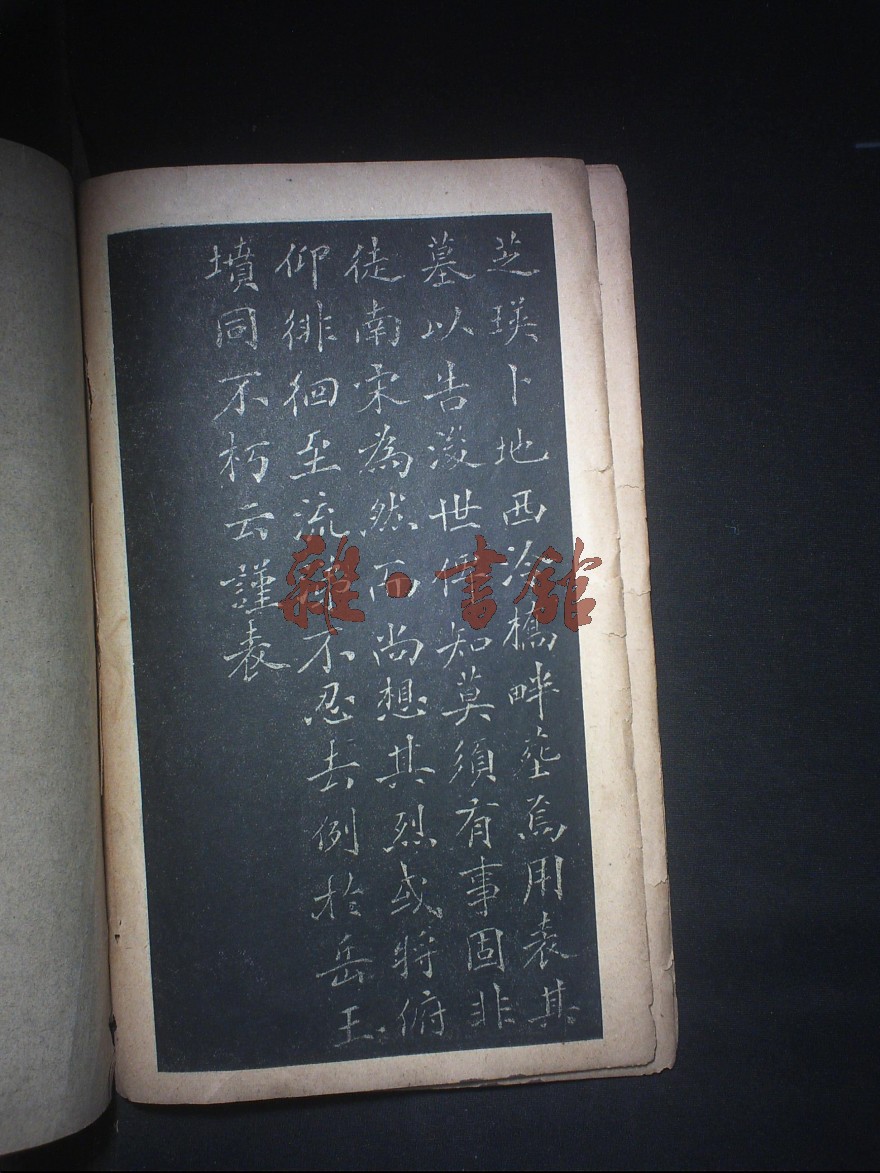 芝瑛卜地西泠橋畔塟焉用表其
墓以告後世俾知莫須有事固非
徒南宋為然而尚想其烈或將俯
仰徘徊至流涕不忍去例於岳王
墳同不朽云謹表
雜·書館